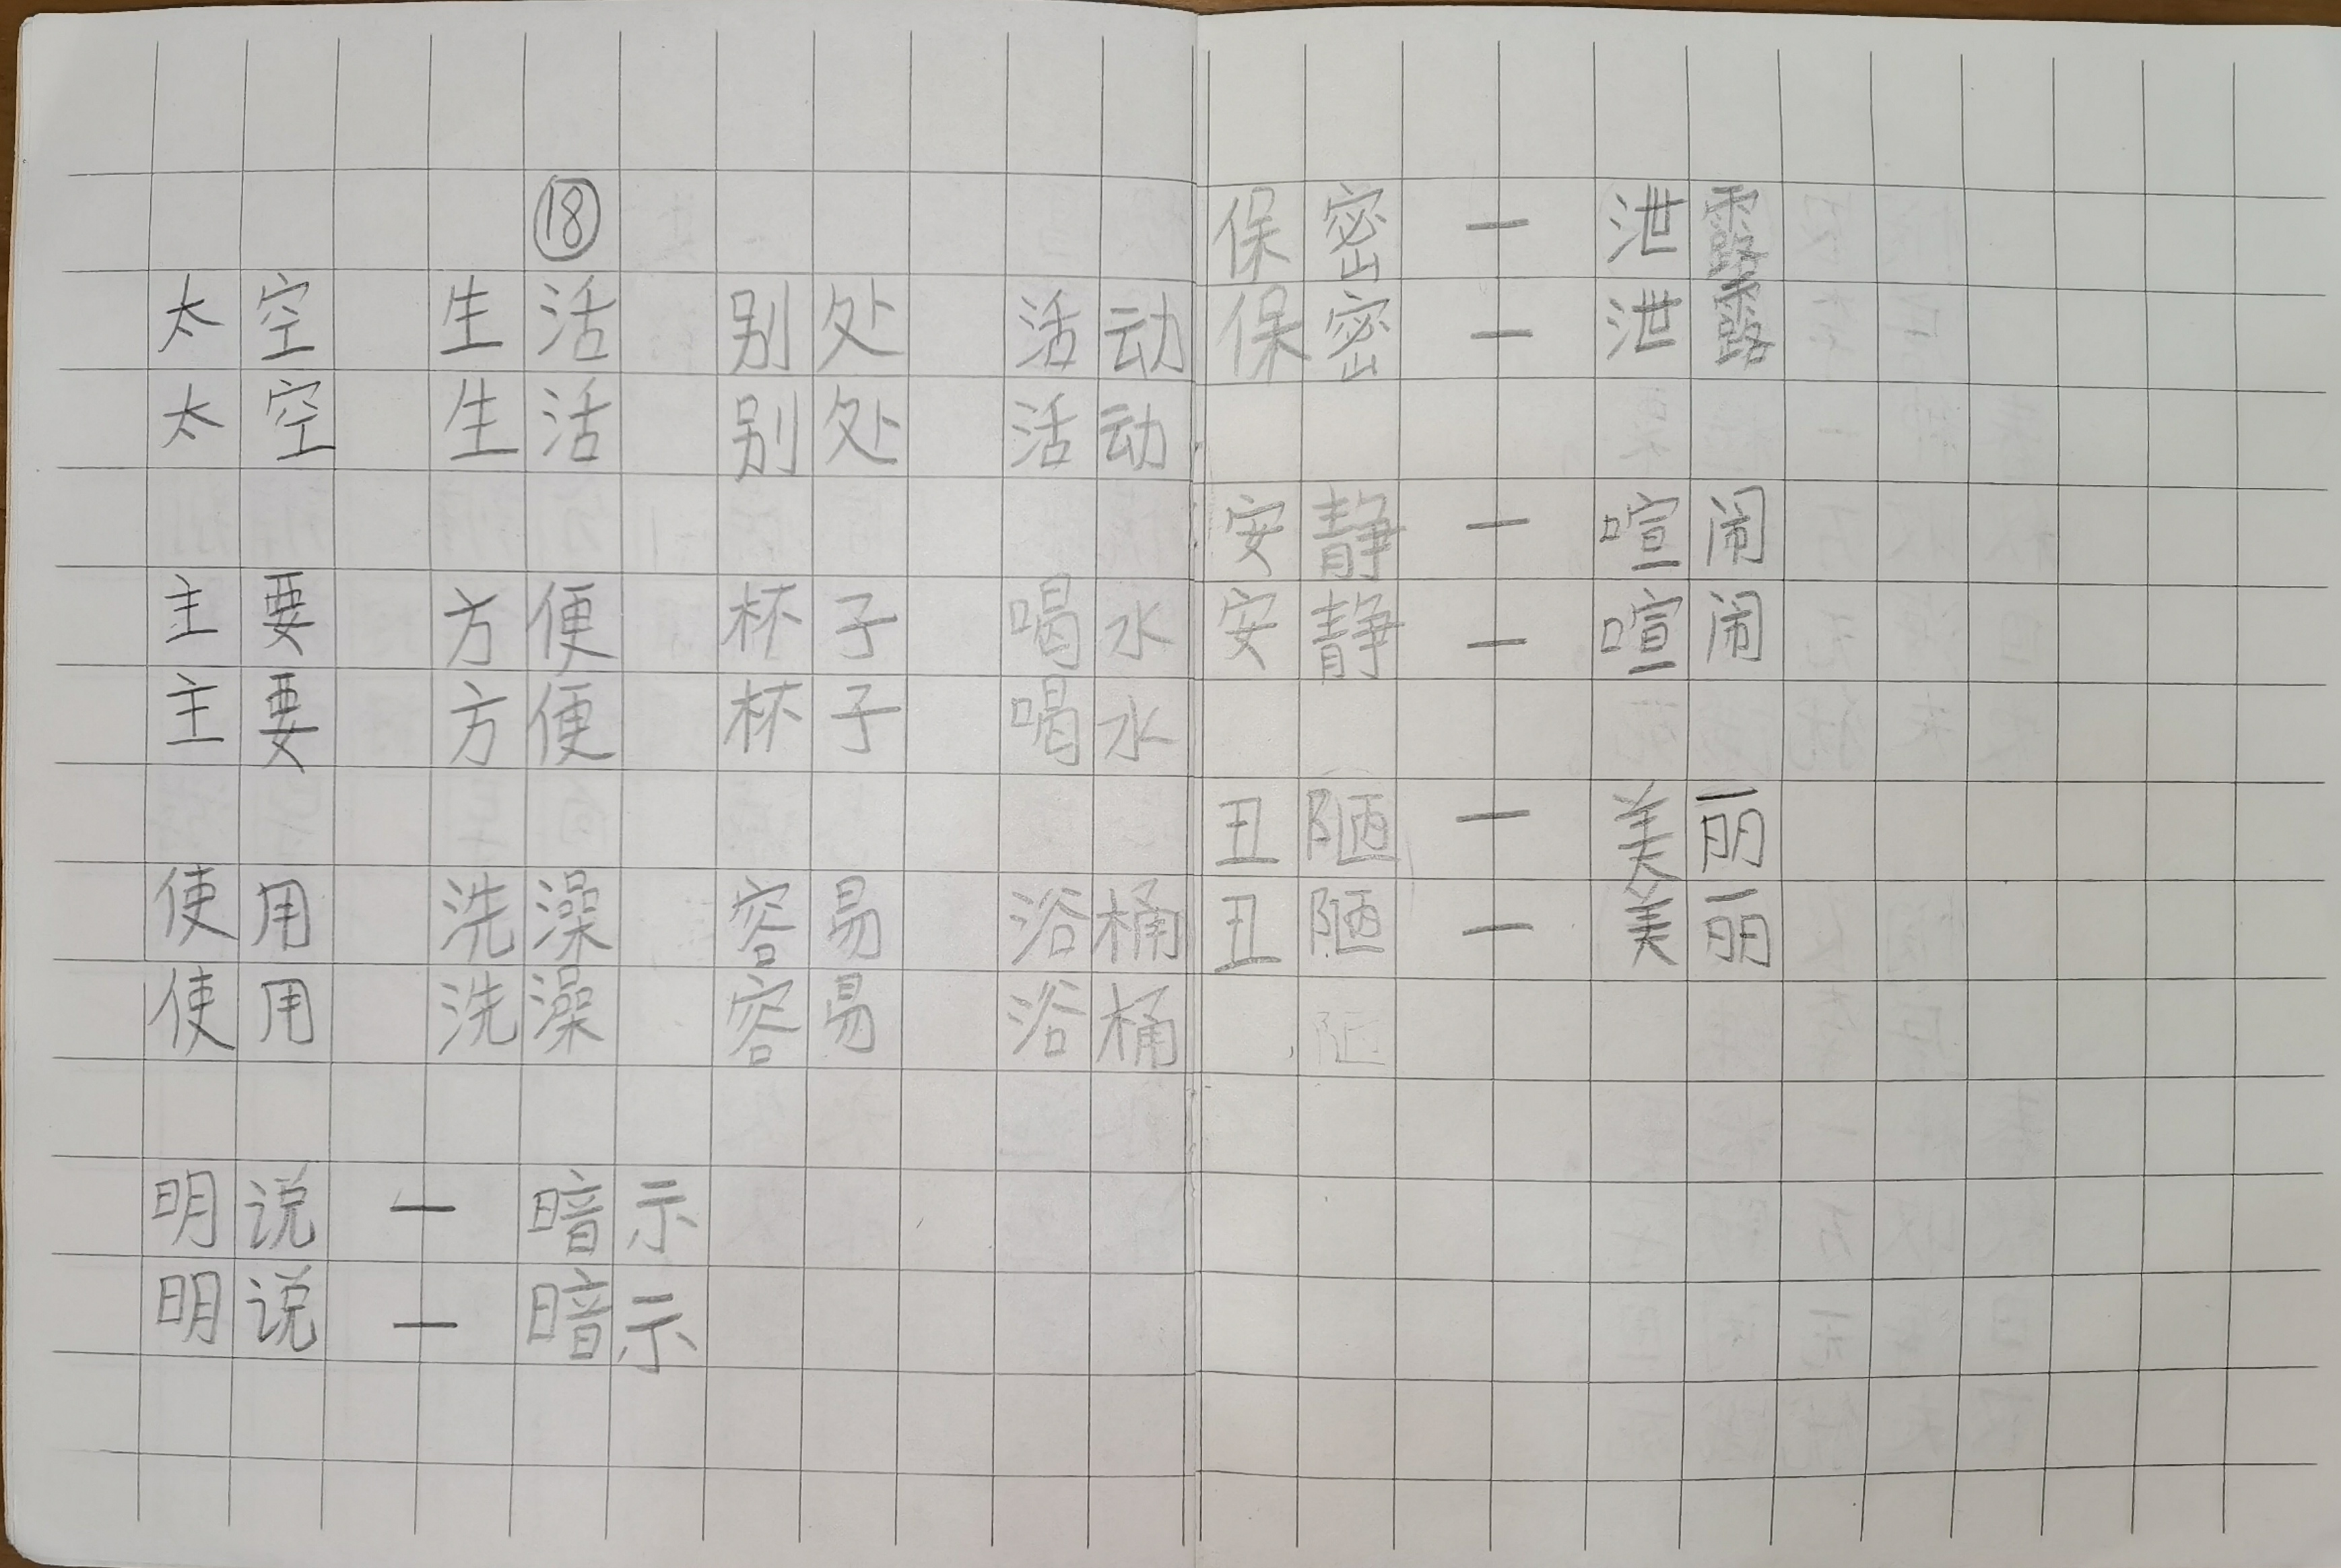 ⑱
太空 生活 别处 活动
太空 生活 别处 活动
主要 方便 杯子 喝水
主要 方便 杯子 喝水
使用 洗澡 容易 浴桶
使用 洗澡 容易 浴桶
明说 — 暗示
明说 — 暗示
保密 — 泄露
保密 — 泄露
安静 — 喧闹
安静 — 喧闹
丑陋 — 美丽
丑陋 — 美丽